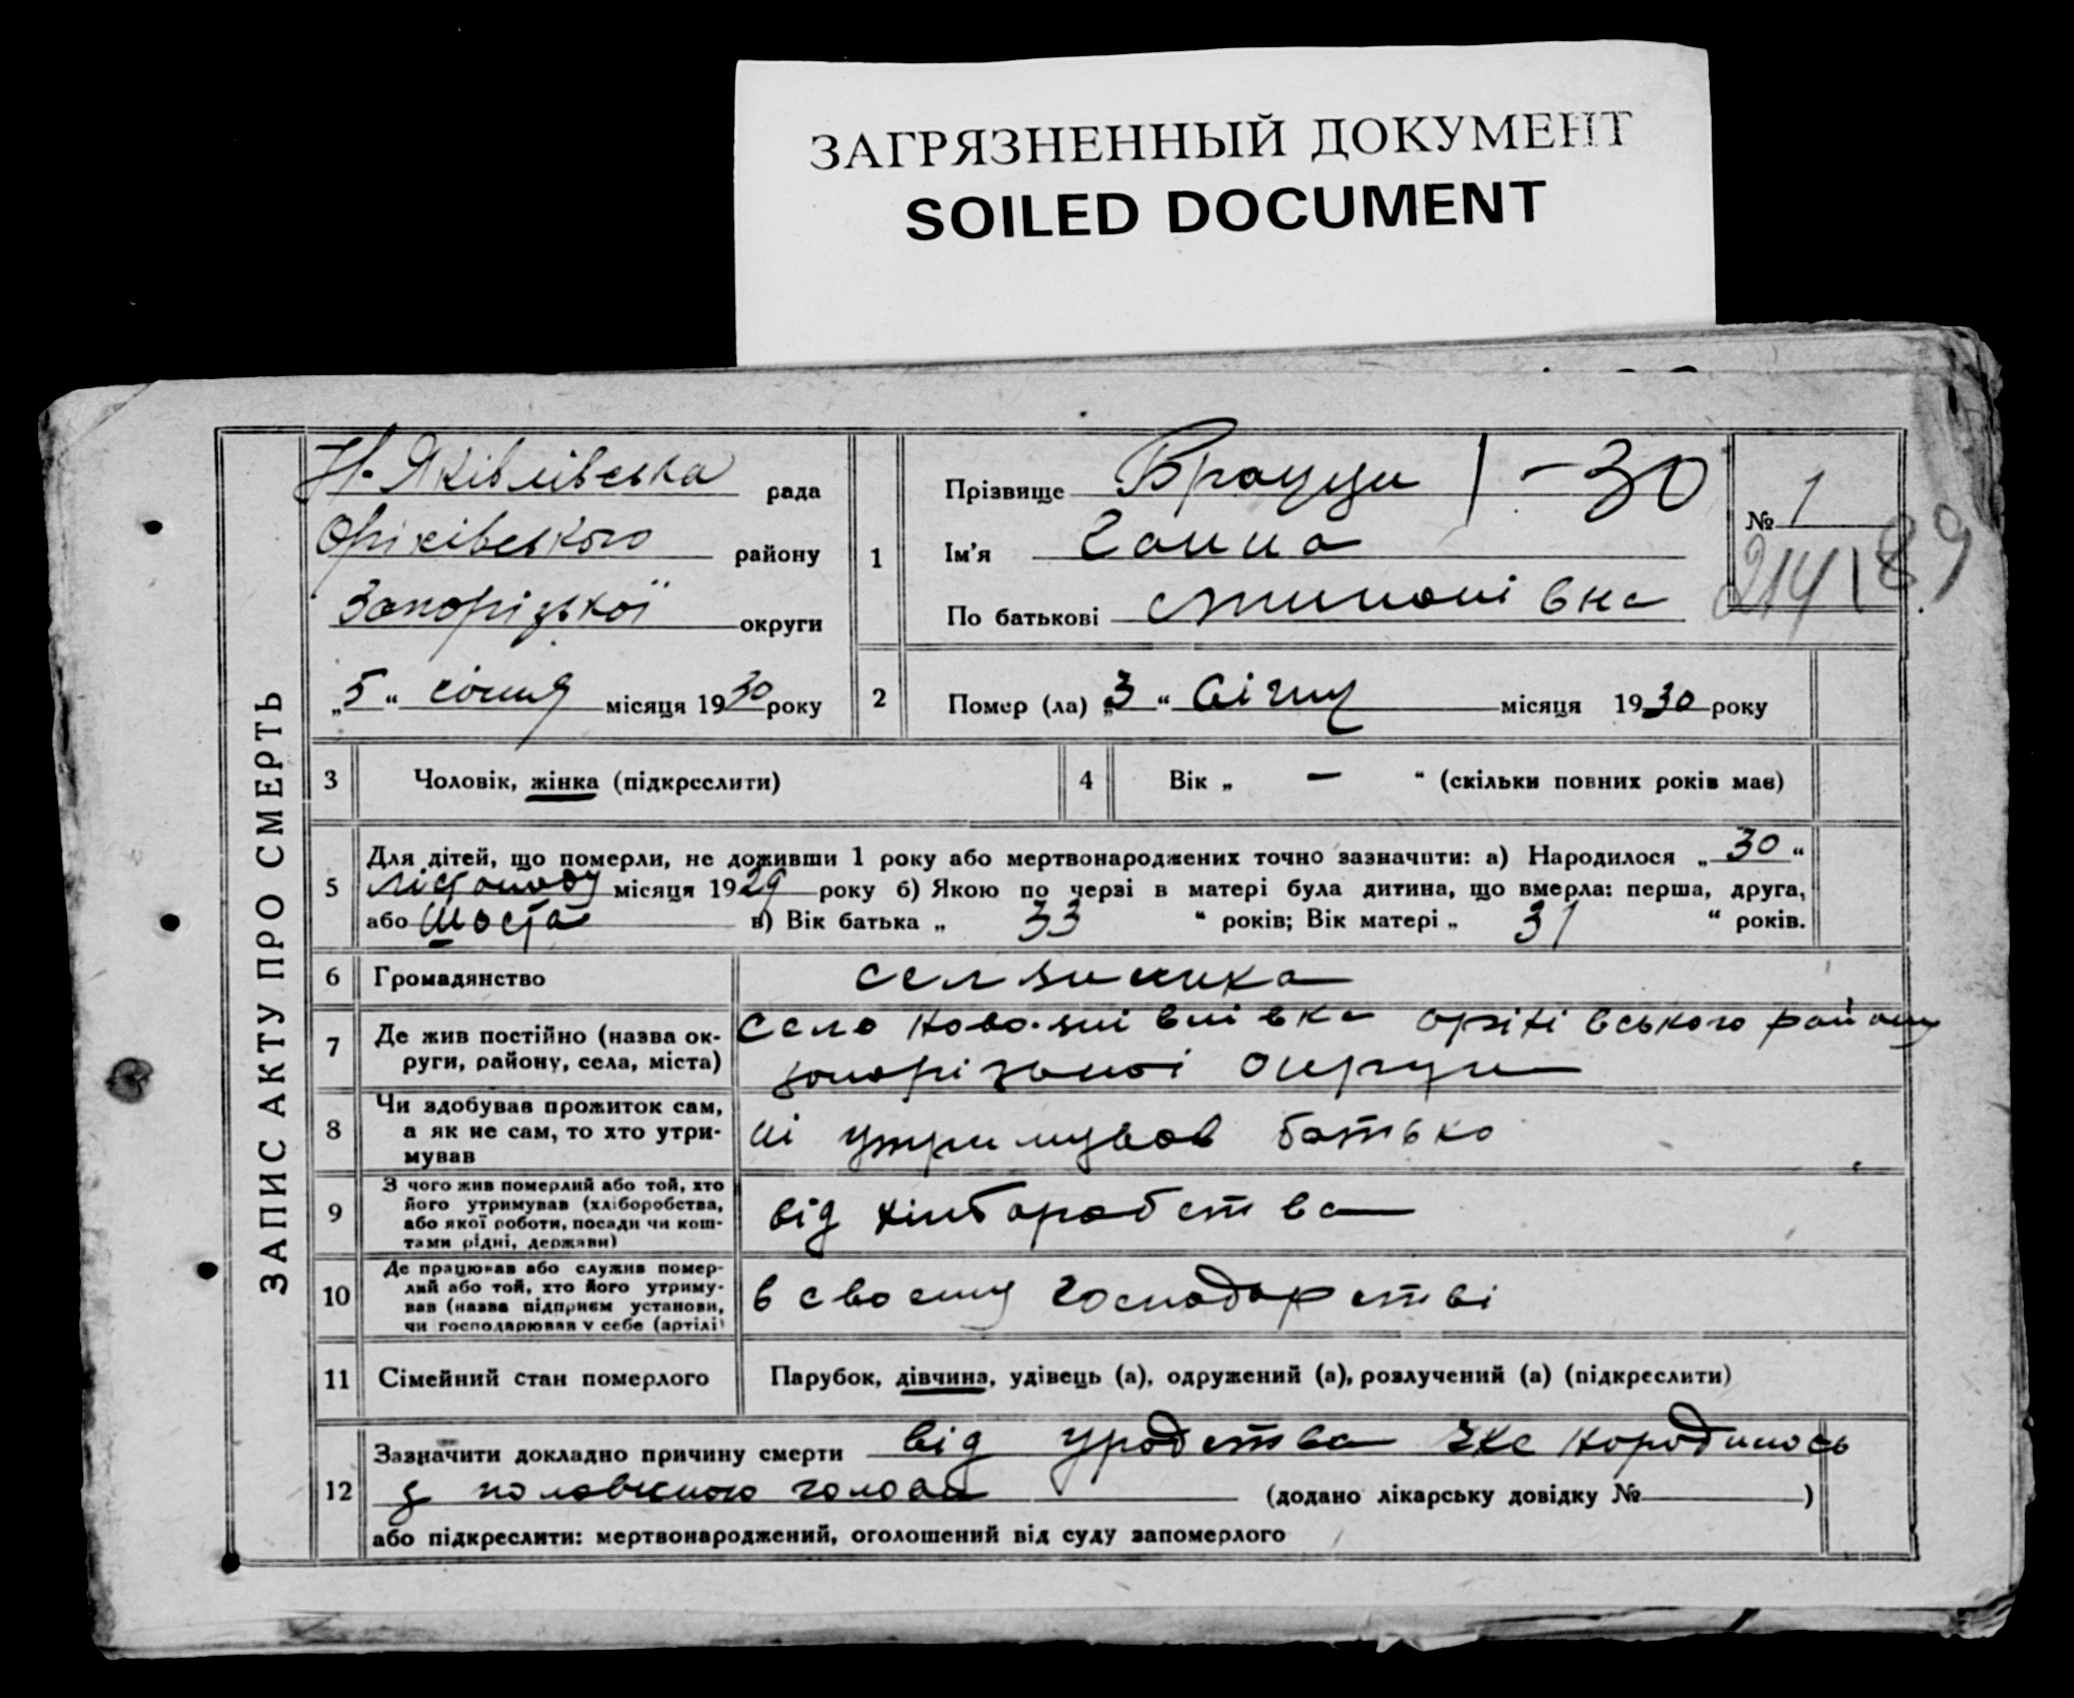 ЗАГРЯЗНЕННЫЙ ДОКУМЕНТ
SOILED DOCUMENT
ЗАПИС АКТУ ПРО СМЕРТЬ
Н. Яківлівська рада
Оріхівського району
Запоріцької округи
„5“ січня місяця 1930 року
1
Прізвище 1-30
Ім’я Ганна
По батькові
№ 1
214 189
2
Помер (ла) „3“ Січня місяця 1930 року
3
Чоловік, жінка (підкреслити)
4
Вік „ — “ (скільки повних років мав)
5
Для дітей, що померли, не доживши 1 року або мертвонароджених точно зазначити: а) Народилося „30“
лістопаду місяця 1929 року б) Якою по черзі в матері була дитина, що вмерла: перша, друга,
або шоста в) Вік батька „ 33 “ років; Вік матері „ 31 “ років.
6
Громадянство
селяника
7
Де жив постійно (назва ок-
руги, району, села, міста)
село Ново-яківлівка оріхівського району
округи
8
Чи здобував прожиток сам,
а як не сам, то хто утри-
мував
ні утримував батько
9
З чого жив померлий або той, хто
його утримував (хліборобства,
або якої роботи, посади чи кош-
тами рідні, держави)
від хліборобства
10
Де працював або служив помер-
лий або той, хто його утриму-
вав (назва підприєм установи,
чи господарював у себе (артілі)
в своему господарстві
11
Сімейний стан померлого
Парубок, дівчина, удівець (а), одружений (а), розлучений (а) (підкреслити)
12
Зазначити докладно причину смерти від уродства народилось
з половиною голови (додано лікарську довідку № )
або підкреслити: мертвонароджений, оголошений від суду запомерлого